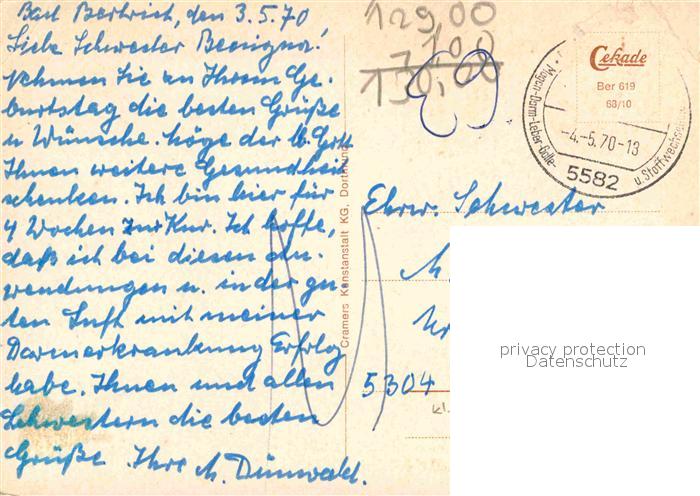 Bad Bertrich, den 3.5.70
Liebe Schwester Benigna!
Nehmen Sie zu Ihrem Ge-
burtstag die besten Grüße
u. Wünsche. Möge der lb. Gott
Ihnen weitere Gesundheit
schenken. Ich bin hier für
4 Wochen zur Kur. Ich hoffe,
daß ich bei diesen An-
wendungen u. in der gu-
ten Luft mit meiner
Darmerkrankung Erfolg
habe. Ihnen und allen
Schwestern die besten
Grüße Ihre M. Dünwald.
Cramers Kunstanstalt KG, Dortmund
129,00
1,00
130,00
Cekade
Ber 619
63/10
Magen-Darm-Leber-Galle-
u. Stoffwechsel
-4.-5.70-13
5582
Ehrw. Schwester
M.
5304
privacy protection
Datenschutz